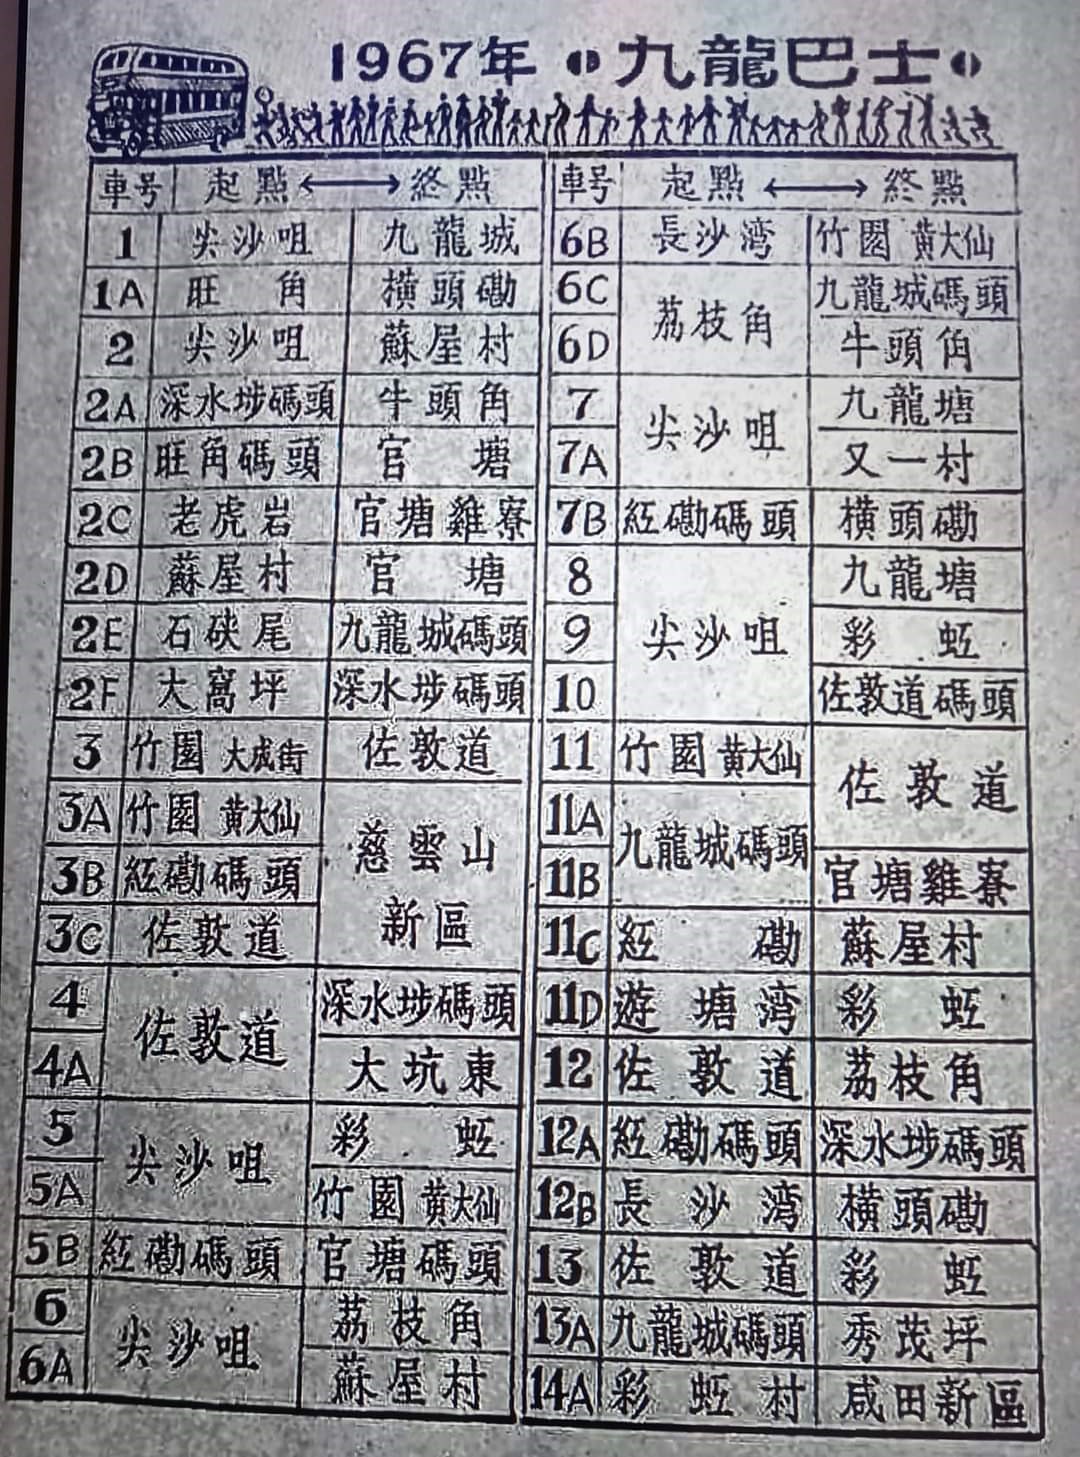 1967年 九龍巴士
車号 起點 ⟷ 終點
1 尖沙咀 九龍城
1A 旺角 橫頭磡
2 尖沙咀 蘇屋村
2A 深水埗碼頭 牛頭角
2B 旺角碼頭 官塘
2C 老虎岩 官塘雞寮
2D 蘇屋村 官塘
2E 石硤尾 九龍城碼頭
2F 大窩坪 深水埗碼頭
3 竹園 大成街 佐敦道
3A 竹園 黃大仙 慈雲山
3B 紅磡碼頭 新區
3C 佐敦道
4 佐敦道 深水埗碼頭
4A 大坑東
5 尖沙咀 彩虹
5A 竹園 黃大仙
5B 紅磡碼頭 官塘碼頭
6 尖沙咀 荔枝角
6A 蘇屋村
車号 起點 ⟷ 終點
6B 長沙湾 竹園 黃大仙
6C 荔枝角 九龍城碼頭
6D 牛頭角
7 尖沙咀 九龍塘
7A 又一村
7B 紅磡碼頭 橫頭磡
8 尖沙咀 九龍塘
9 彩虹
10 佐敦道碼頭
11 竹園 黃大仙 佐敦道
11A 九龍城碼頭
11B 官塘雞寮
11C 紅磡 蘇屋村
11D 遊塘湾 彩虹
12 佐敦道 荔枝角
12A 紅磡碼頭 深水埗碼頭
12B 長沙湾 橫頭磡
13 佐敦道 彩虹
13A 九龍城碼頭 秀茂坪
14A 彩虹村 咸田新區